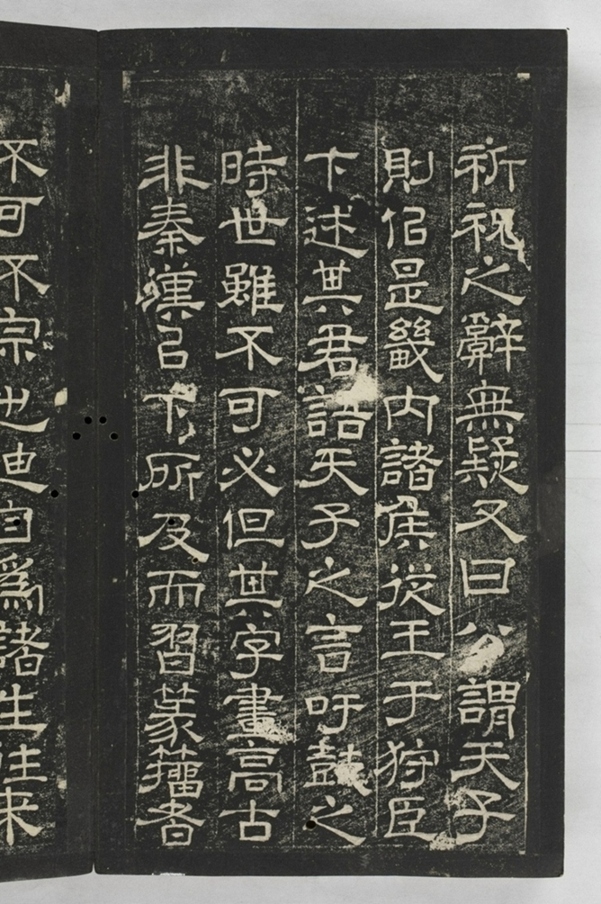 祈祝之辭無疑又曰公謂天子
則侶是畿内諸侯從王于狩臣
下述其君語天子之言吁鼓之
時世雖不可必但其字畫高古
非秦漢㠯下所及而習篆籀者
不可不宗也迪自爲諸生往来